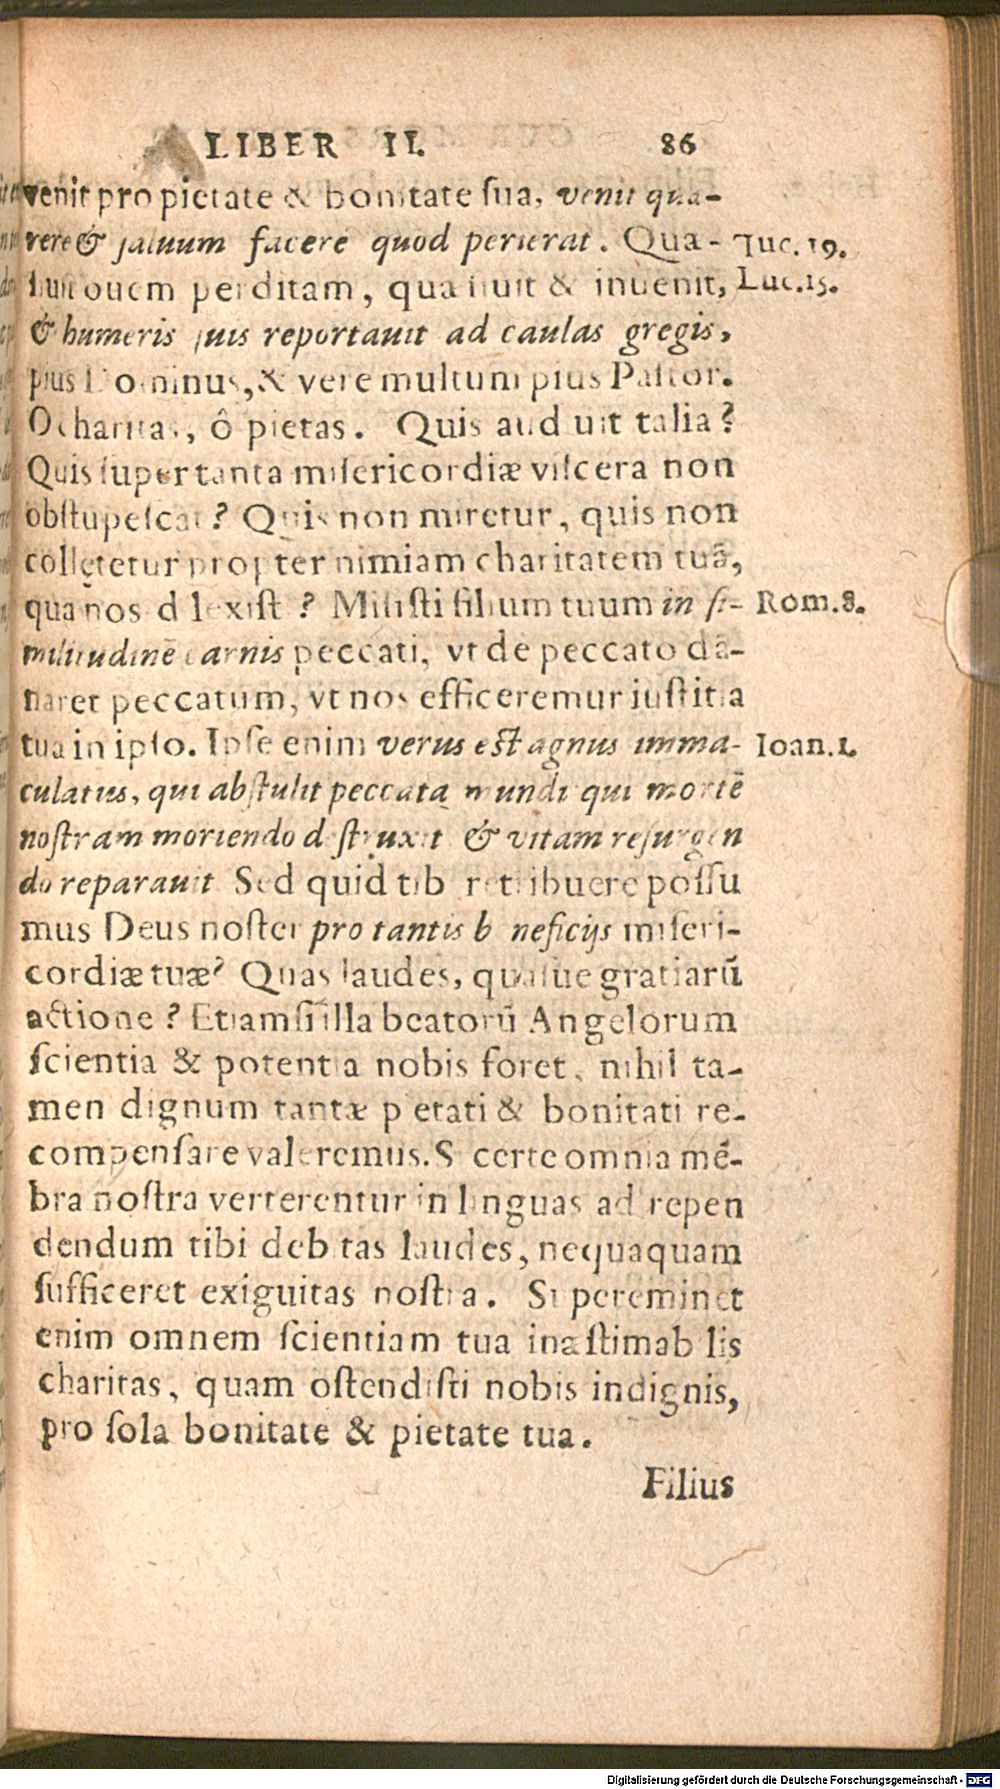 LIBER II. 86
venit pro pietate & bonitate sua, venit quæ-
rere & saluum facere quod perierat. Quæ- Luc. 19.
siuit ouem perditam, quæsiuit & inuenit, Luc. 15.
& humeris suis reportauit ad caulas gregis,
pius Dominus, & vere multum pius Pastor.
O charitas, ô pietas. Quis audiuit talia?
Quis super tanta misericordiæ viscera non
obstupescat? Quis non miretur, quis non
collętetur propter nimiam charitatem tuã,
qua nos dilexisti? Misisti filium tuum in si- Rom. 8.
militudinẽ carnis peccati, vt de peccato dã-
naret peccatum, vt nos efficeremur iustitia
tua in ipso. Ipse enim verus est agnus imma- Ioan. 1.
culatus, qui abstulit peccata mundi qui mortẽ
nostram moriendo destruxit & vitam resurgen
do reparauit Sed quid tibi retribuere possu
mus Deus noster pro tantis beneficijs miseri-
cordiæ tuæ? Quas laudes, quasue gratiarũ
actione? Etiamsi illa beatorũ Angelorum
scientia & potentia nobis foret, nihil ta-
men dignum tantæ pietati & bonitati re-
compensare valeremus. Si certe omnia mẽ-
bra nostra verterentur in linguas ad repen
dendum tibi debitas laudes, nequaquam
sufficeret exiguitas nostra. Supereminet
enim omnem scientiam tua inæstimabilis
charitas, quam ostendisti nobis indignis,
pro sola bonitate & pietate tua.
Filius
Digitalisierung gefördert durch die Deutsche Forschungsgemeinschaft - DFG